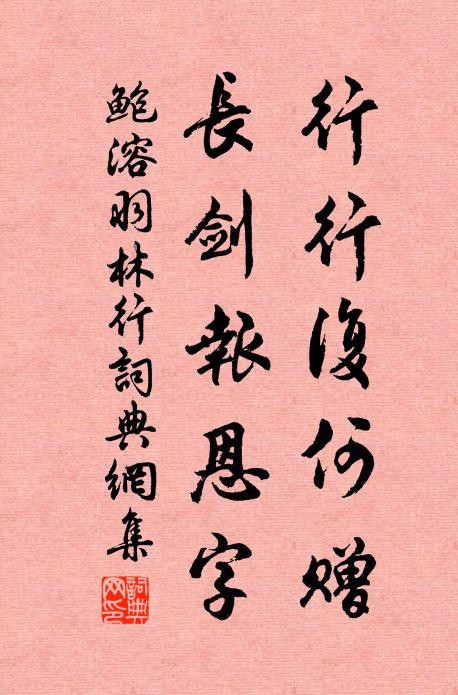 行行復何贈
長劍報恩字
鮑溶羽林行詞典網集
詞典網印